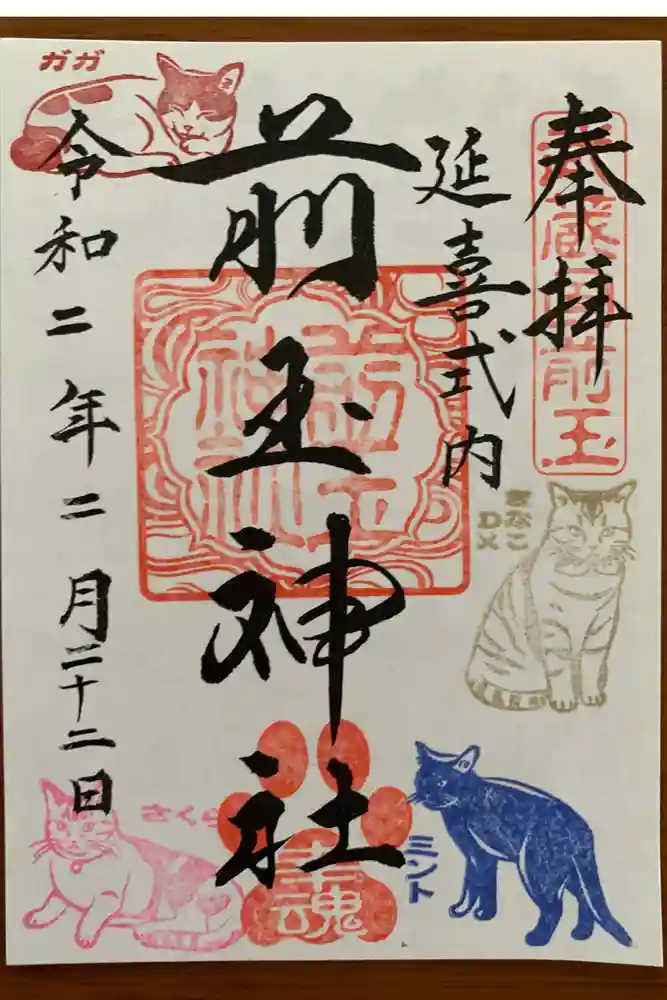 奉拝
武蔵國前玉
延喜式内
前玉神社
前玉神社
令和二年二月二十二日
ガガ
きなこ
DX
ミント
さくら
幸魂